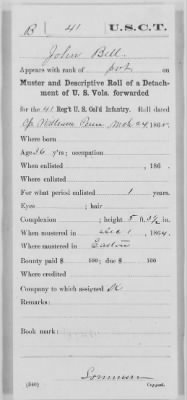 B | 41 | U.S.C.T.
John Bell
Appears with rank of Pvt on
Muster and Descriptive Roll of a Detach-
ment of U. S. Vols. forwarded
for the 41 Reg't U. S. Col'd Infantry. Roll dated
Cp. William Penn Mch 24, 1865.
Where born
Age 36 y'rs; occupation
When enlisted , 186 .
Where enlisted
For what period enlisted 1 years.
Eyes ; hair
Complexion ; height 5 ft. 3½ in.
When mustered in Dec 1 , 1864.
Where mustered in Easton
Bounty paid $ 100; due $ 100
Where credited
Company to which assigned
Remarks:
Book mark:
(340) Copyist.